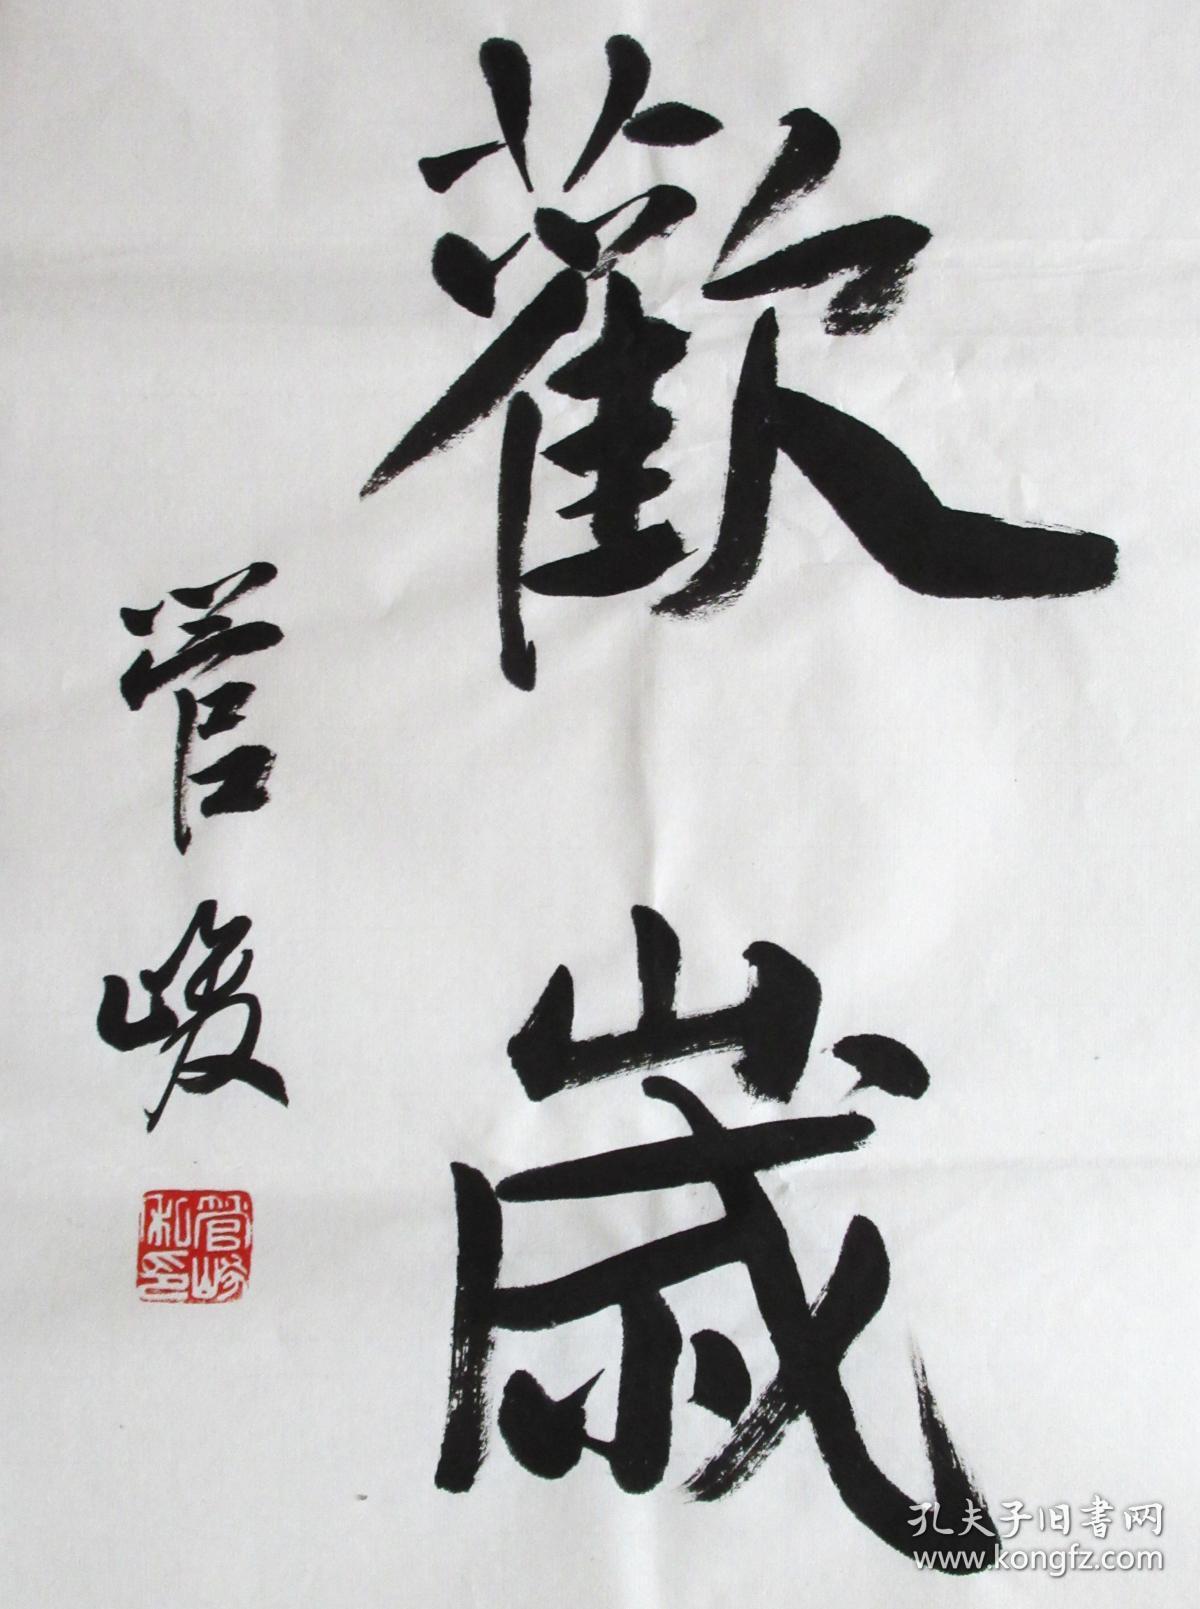 歡
歲
管峻
管峻
私印
孔夫子旧书网
www.kongfz.com